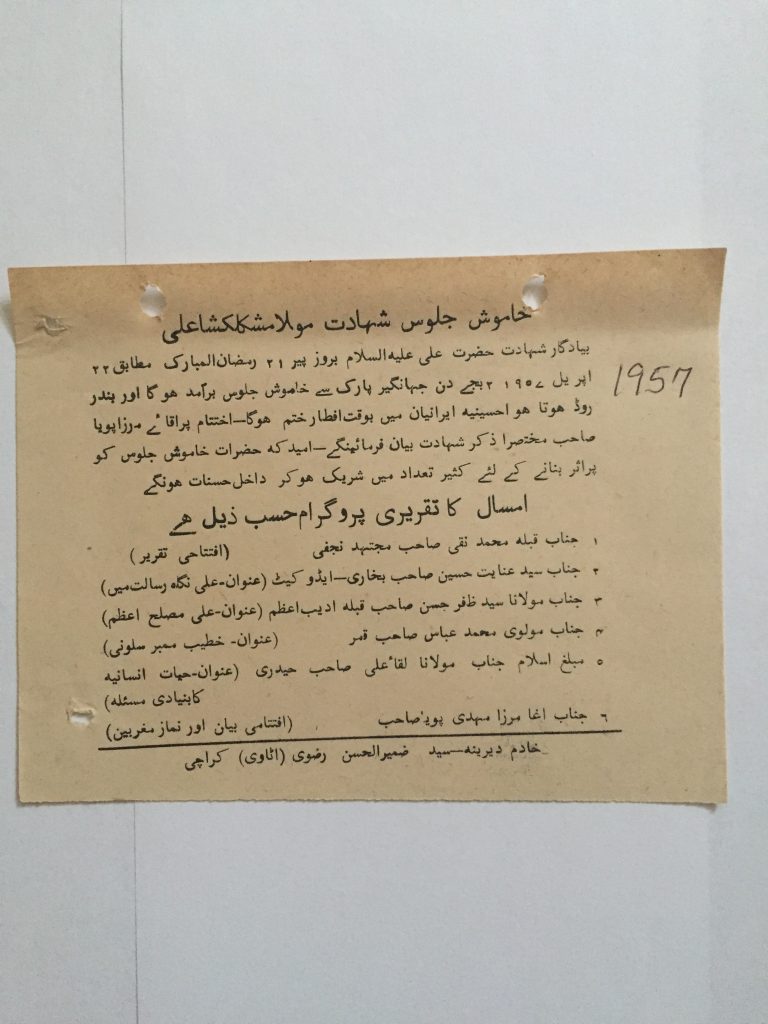 خاموش جلوس شہادت مولا مشکلکشا علی
بیادگار شہادت حضرت علی علیہ السلام بروز پیر ۲۱ رمضان المبارک مطابق ۲۲
اپریل ۱۹۵۷ ۲ بجے دن جہانگیر پارک سے خاموش جلوس برآمد ہوگا اور بندر
1957
روڈ ہوتا ہوا حسینیہ ایرانیان میں بوقت افطار ختم ہوگا—اختتام پر اقائے مرزا پویا
صاحب مختصرا ذکر شہادت بیان فرمائینگے—امید کہ حضرات خاموش جلوس کو
پراثر بنانے کے لئے کثیر تعداد میں شریک ہو کر داخل حسنات ہونگے
امسال کا تقریری پروگرام حسب ذیل ہے
۱ جناب قبلہ محمد نقی صاحب مجتہد نجفی (افتتاحی تقریر)
۲ جناب سید عنایت حسین صاحب بخاری—ایڈوکیٹ (عنوان-علی نگاہ رسالت میں)
۳ جناب مولانا سید ظفر حسن صاحب قبلہ ادیب اعظم (عنوان-علی مصلح اعظم)
۴ جناب مولوی محمد عباس صاحب قمر (عنوان- خطیب ممبر سلونی)
۵ مبلغ اسلام جناب مولانا لقاٴ علی صاحب حیدری (عنوان-حیات انسانیه
کا بنیادی مسئلہ)
۶ جناب اغا مرزا مہدی پویا صاحب (افتتامی بیان اور نماز مغربین)
خادم دیرینہ—سید ضمیرالحسن رضوی (اٹاوی) کراچی